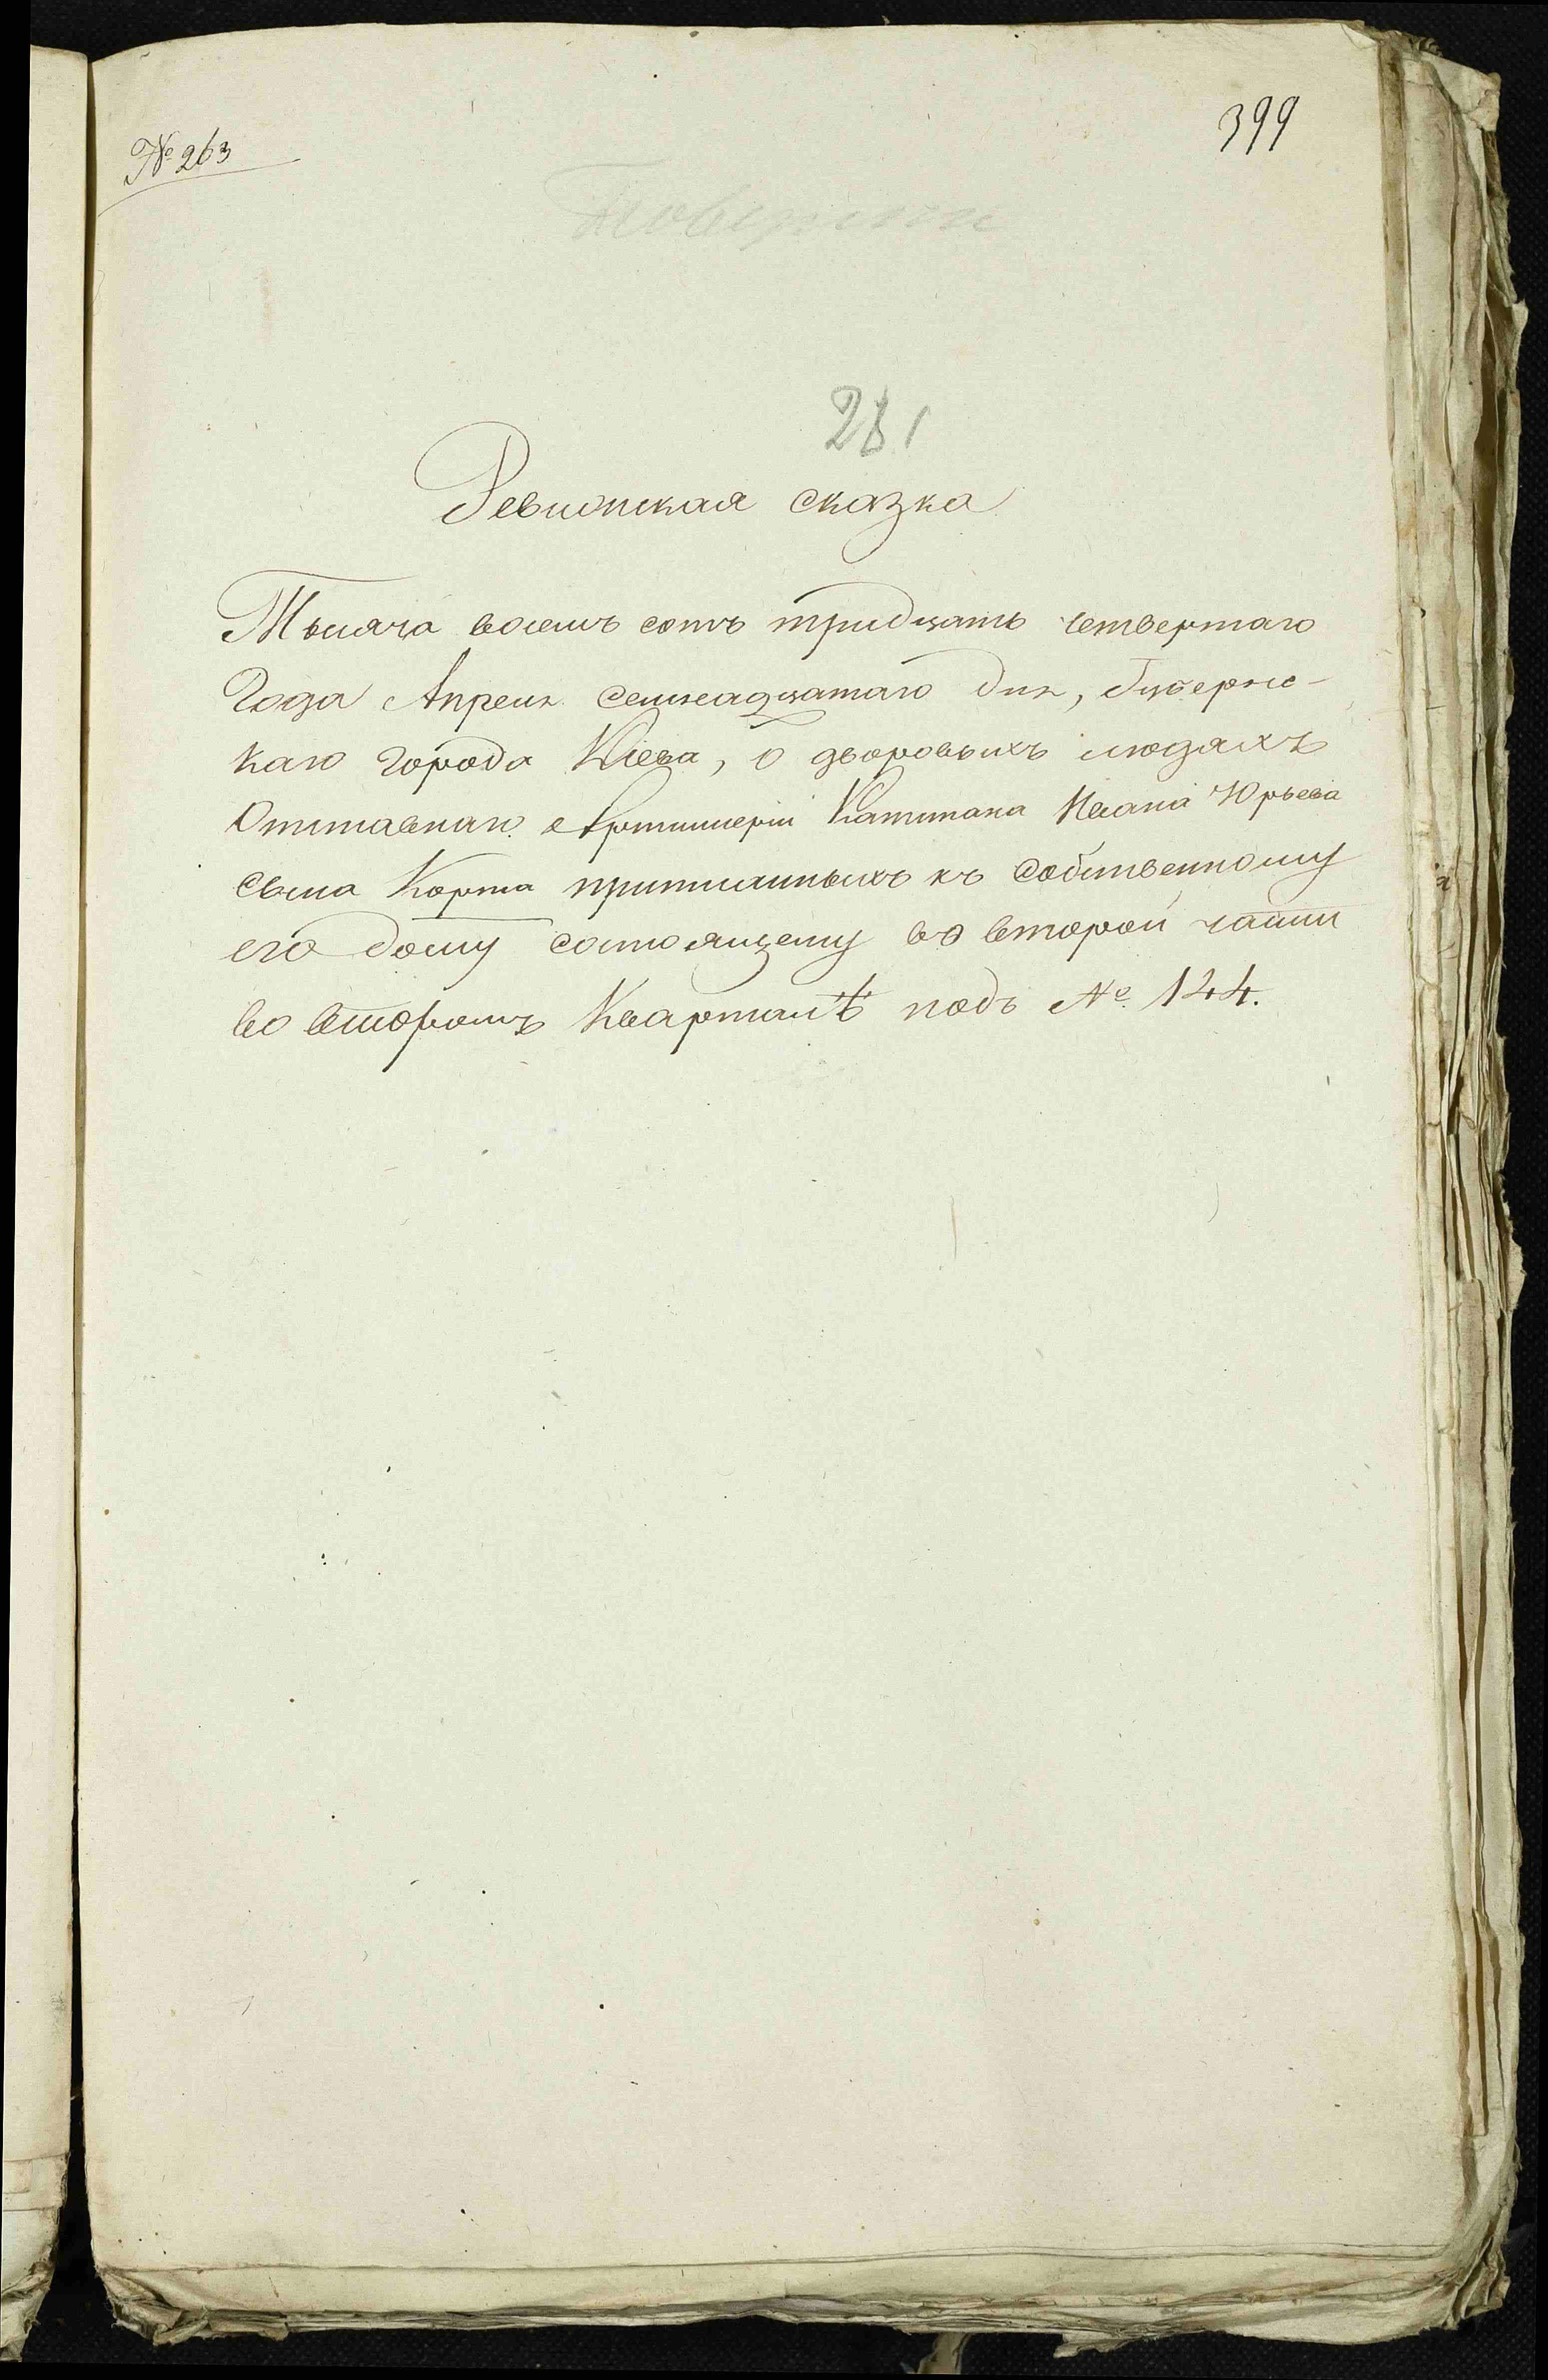 № 263
399
281
Ревизская сказка
Тысяча восемь сотъ тридцать четвертаго
Года Апреля семнадцатаго дня, Губернс-
каго города Кіева, о дворовыхъ людяхъ
Отставнаго Артиллеріи Капитана Ивана Юрьева
сына Корта приписныхъ къ собственному
его дому состоящему во второй части
во второмъ Кварталѣ подъ № 144.